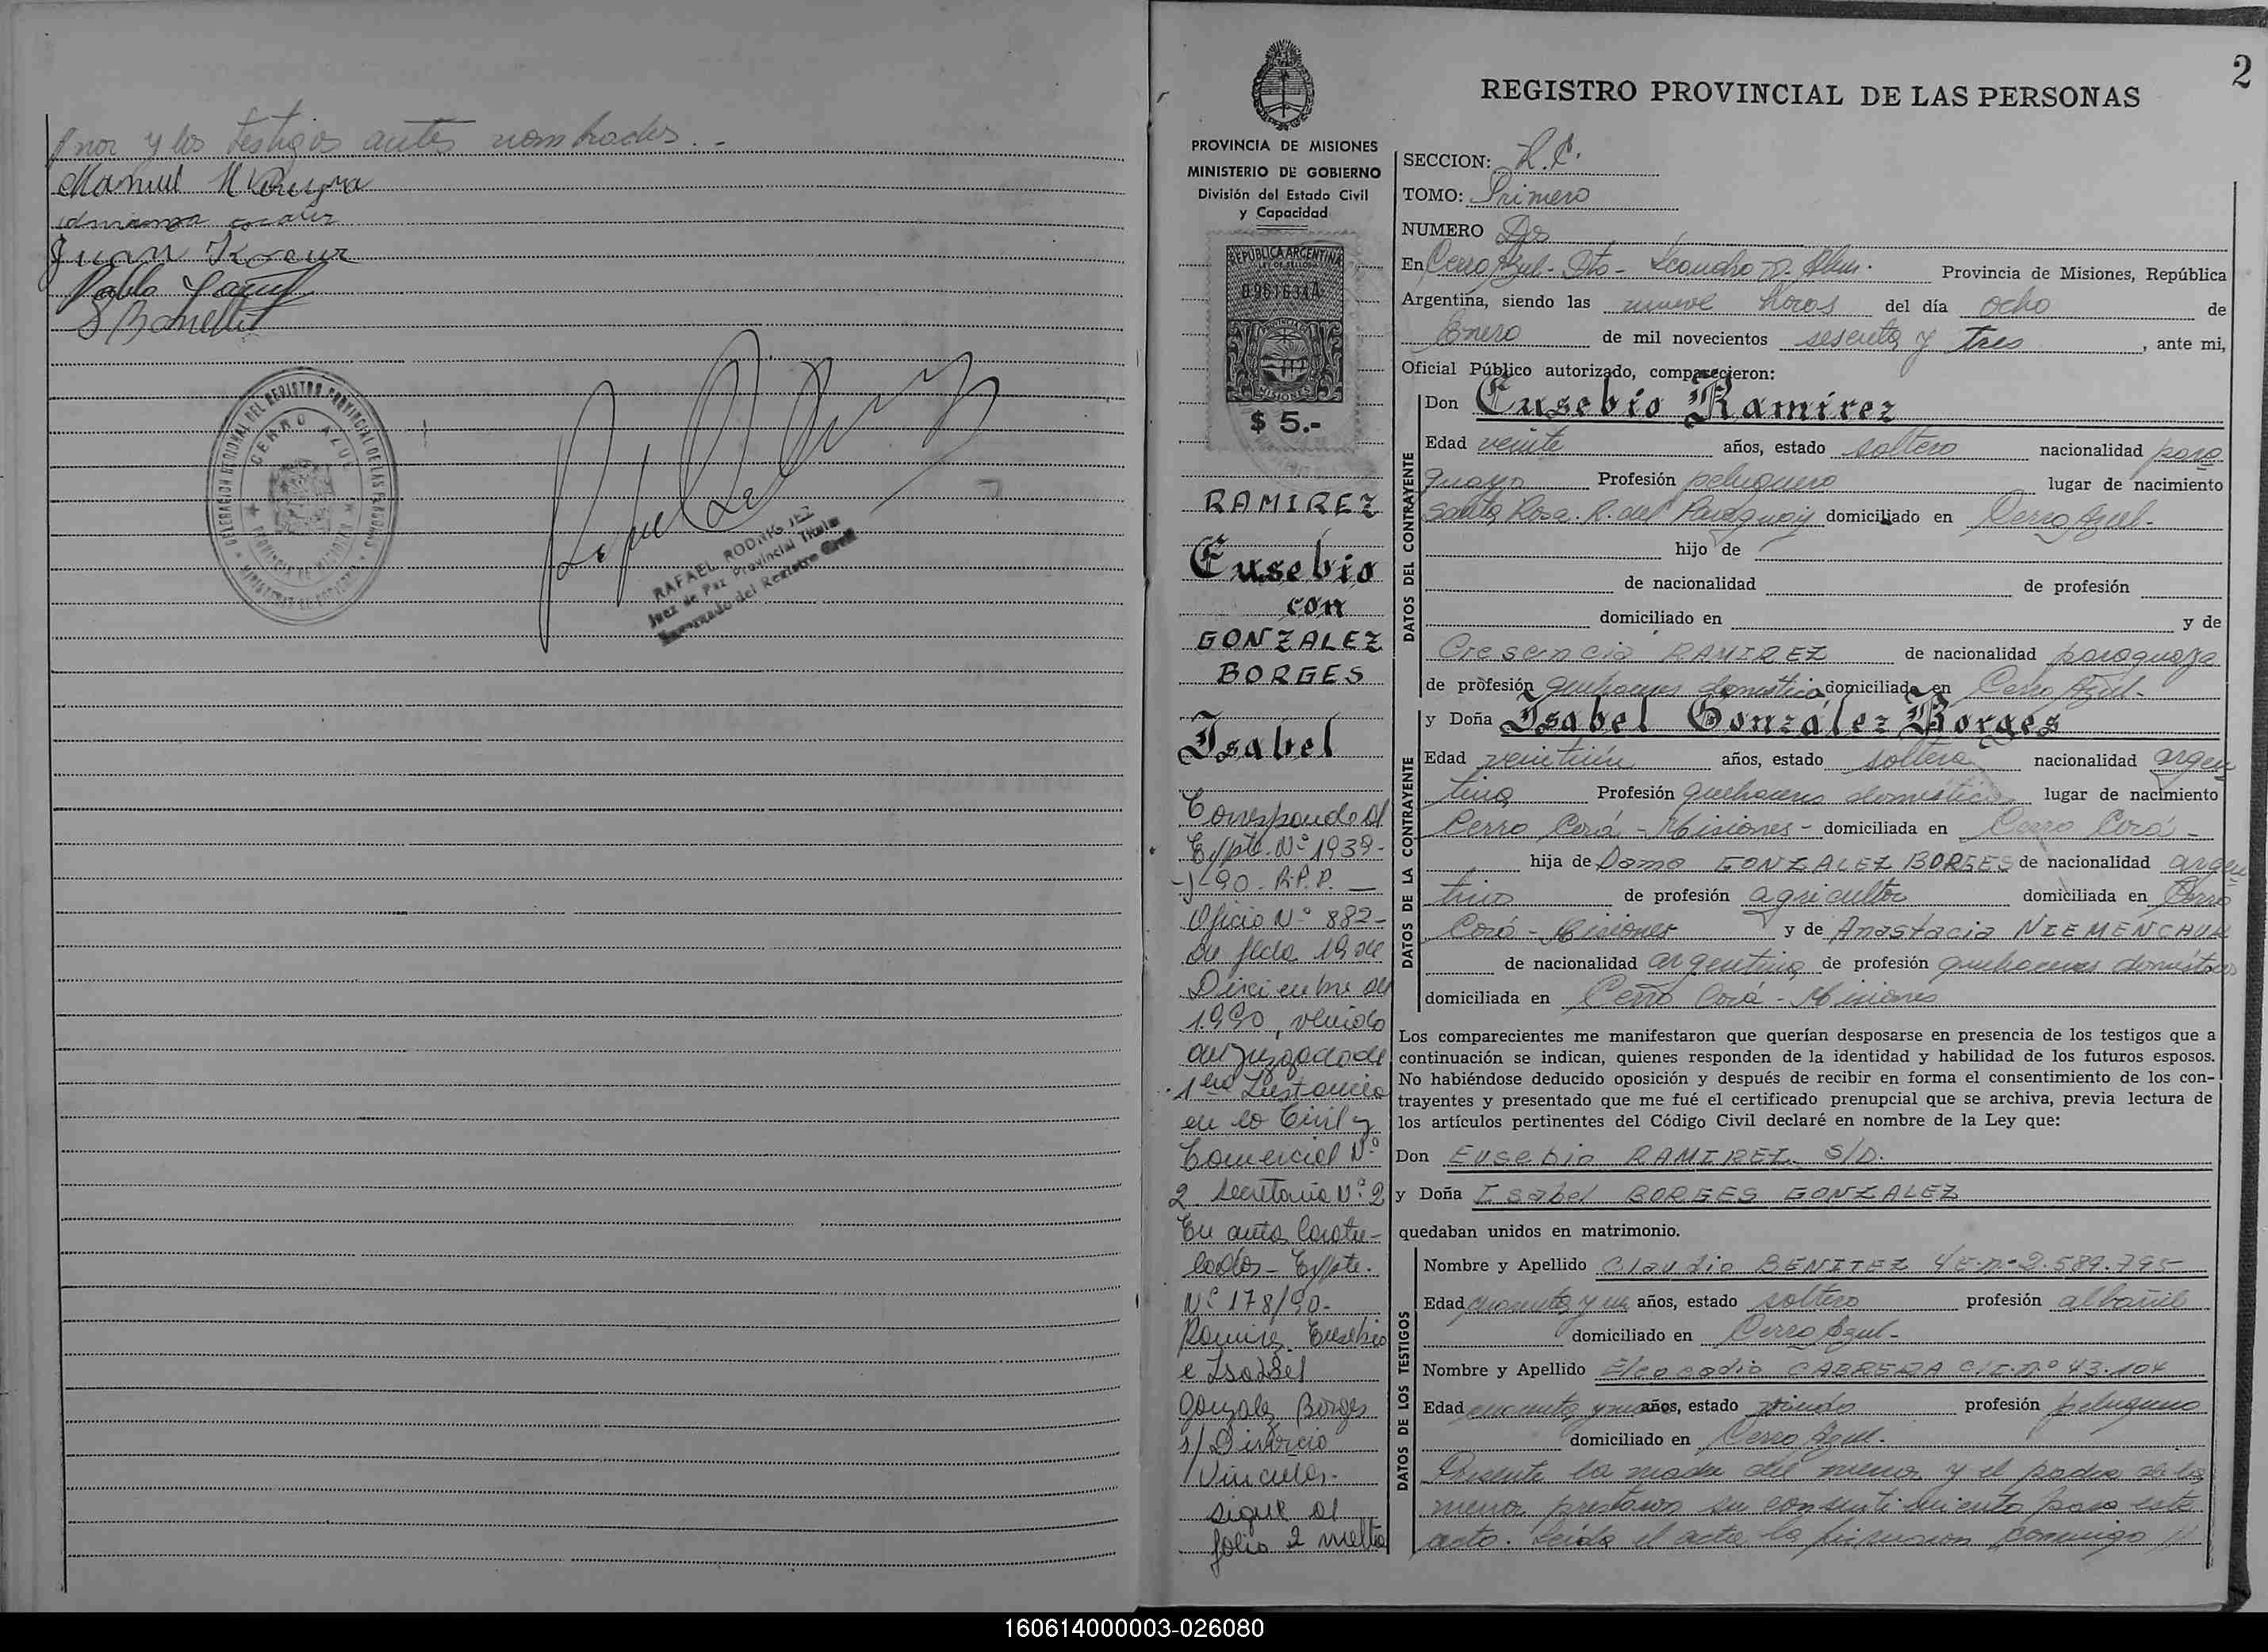 y los testigos antes nombrados.-
Manuel
Juan
Pablo
DELEGACION REGIONAL DEL REGISTRO PROVINCIAL DE LAS PERSONAS
CERRO AZUL
RAFAEL RODRIGUEZ
Juez de Paz Provincial Titular
Encargado del Registro Civil
2
REGISTRO PROVINCIAL DE LAS PERSONAS
PROVINCIA DE MISIONES
MINISTERIO DE GOBIERNO
División del Estado Civil
y Capacidad
REPUBLICA ARGENTINA
LEY DE SELLOS
0961634A
MISIONES
$ 5.-
RAMIREZ
Eusebio
con
GONZALEZ
BORGES
Isabel
Corresponde al
Expte. Nº 1939-
-J-90- R.P.P. —
Oficio Nº 882-
de fecha 19 de
Diciembre de
1.990, venido
del Juzgado de
1era Instancia
en lo Civil y
Comercial Nº
2 Secretaria Nº 2
En autos Caratu-
lados- Expte.
Nº 178/90-
Ramirez Eusebio
e Isabel
Gonzalez Borges
s/ Divorcio
Vincular-
sigue al
folio 2 vuelta
SECCION:
TOMO: Primero
NUMERO Dos
En Cerro Azul- Dto- Leandro N. Alem. Provincia de Misiones, República
Argentina, siendo las nueve horas del día ocho de
Enero de mil novecientos sesenta y tres, ante mi,
Oficial Público autorizado, comparecieron:
DATOS DEL CONTRAYENTE
Don Eusebio Ramirez
Edad veinte años, estado soltero nacionalidad para
guaya Profesión peluquero lugar de nacimiento
Santa Rosa. R. del Paraguay domiciliado en Cerro Azul-
hijo de
de nacionalidad de profesión
domiciliado en y de
Cresencia RAMIREZ de nacionalidad paraguaya
de profesión quehaceres domesticos domiciliada en Cerro Azul-
DATOS DE LA CONTRAYENTE
y Doña Isabel González Borges
Edad veintiún años, estado soltera nacionalidad argen
tina Profesión quehaceres domésticos lugar de nacimiento
Cerro Corá - Misiones - domiciliada en Cerro Corá -
hija de GONZALEZ BORGES de nacionalidad argen
tino de profesión agricultor domiciliada en Cerro
Corá - Misiones y de Anastacia NIEMENCHUK
de nacionalidad argentina de profesión quehaceres domésticos
domiciliada en Cerro Corá - Misiones
Los comparecientes me manifestaron que querían desposarse en presencia de los testigos que a
continuación se indican, quienes responden de la identidad y habilidad de los futuros esposos.
No habiéndose deducido oposición y después de recibir en forma el consentimiento de los con-
trayentes y presentado que me fué el certificado prenupcial que se archiva, previa lectura de
los artículos pertinentes del Código Civil declaré en nombre de la Ley que:
Don Eusebio RAMIREZ S/D.
y Doña Isabel BORGES GONZALEZ
quedaban unidos en matrimonio.
DATOS DE LOS TESTIGOS
Nombre y Apellido Claudio BENITEZ 2.589.795
Edad cuarenta y un años, estado soltero profesión albañil
domiciliado en Cerro Azul-
Nombre y Apellido Eleocadio CABRERA C/I. nº 43.104
Edad años, estado viudo profesión peluquero
domiciliado en Cerro Azul.
Presente la madre del menor y el padre de la
menor prestaron su consentimiento para este
acto. Leída el acta la firmaron conmigo
160614000003-026080